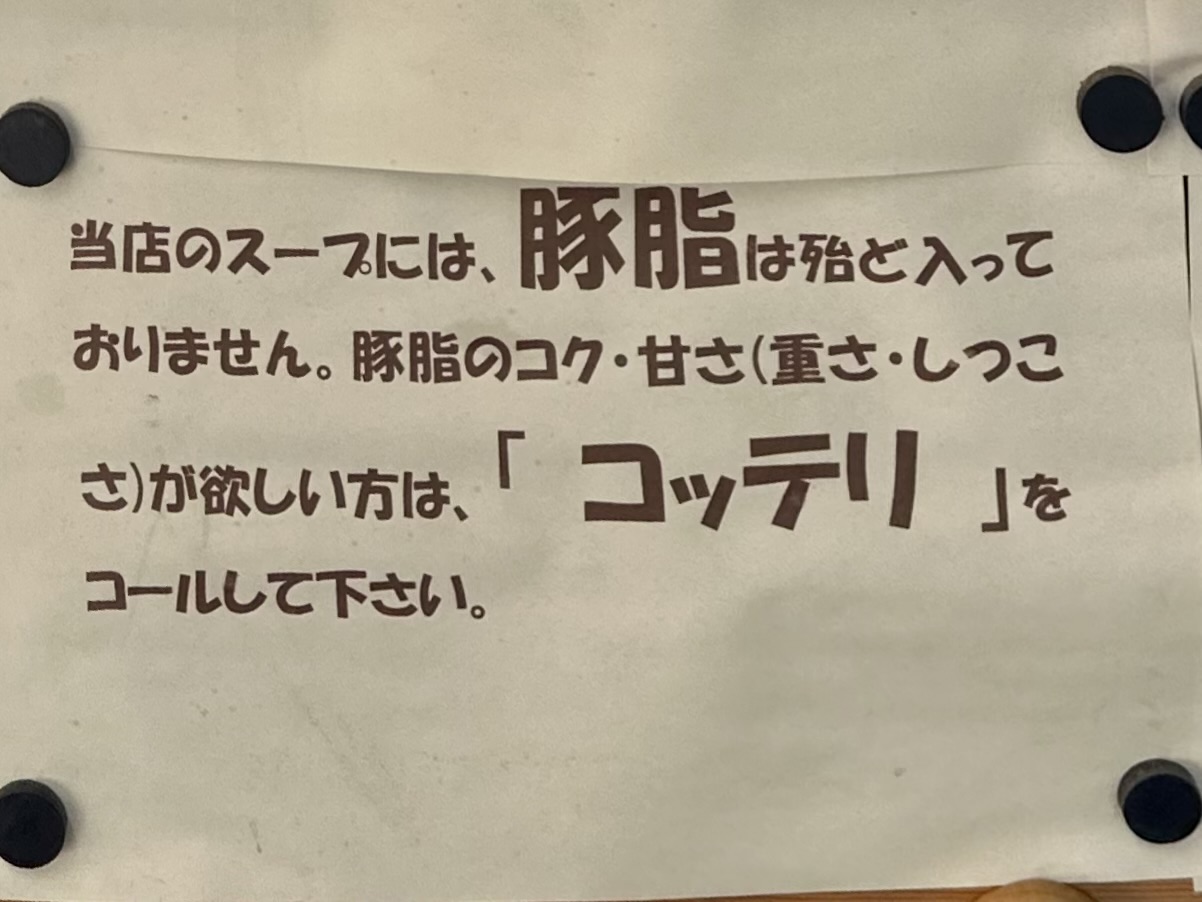 当店のスープには、豚脂は殆ど入って
おりません。豚脂のコク・甘さ(重さ・しつこ
さ)が欲しい方は、「 コッテリ 」を
コールして下さい。